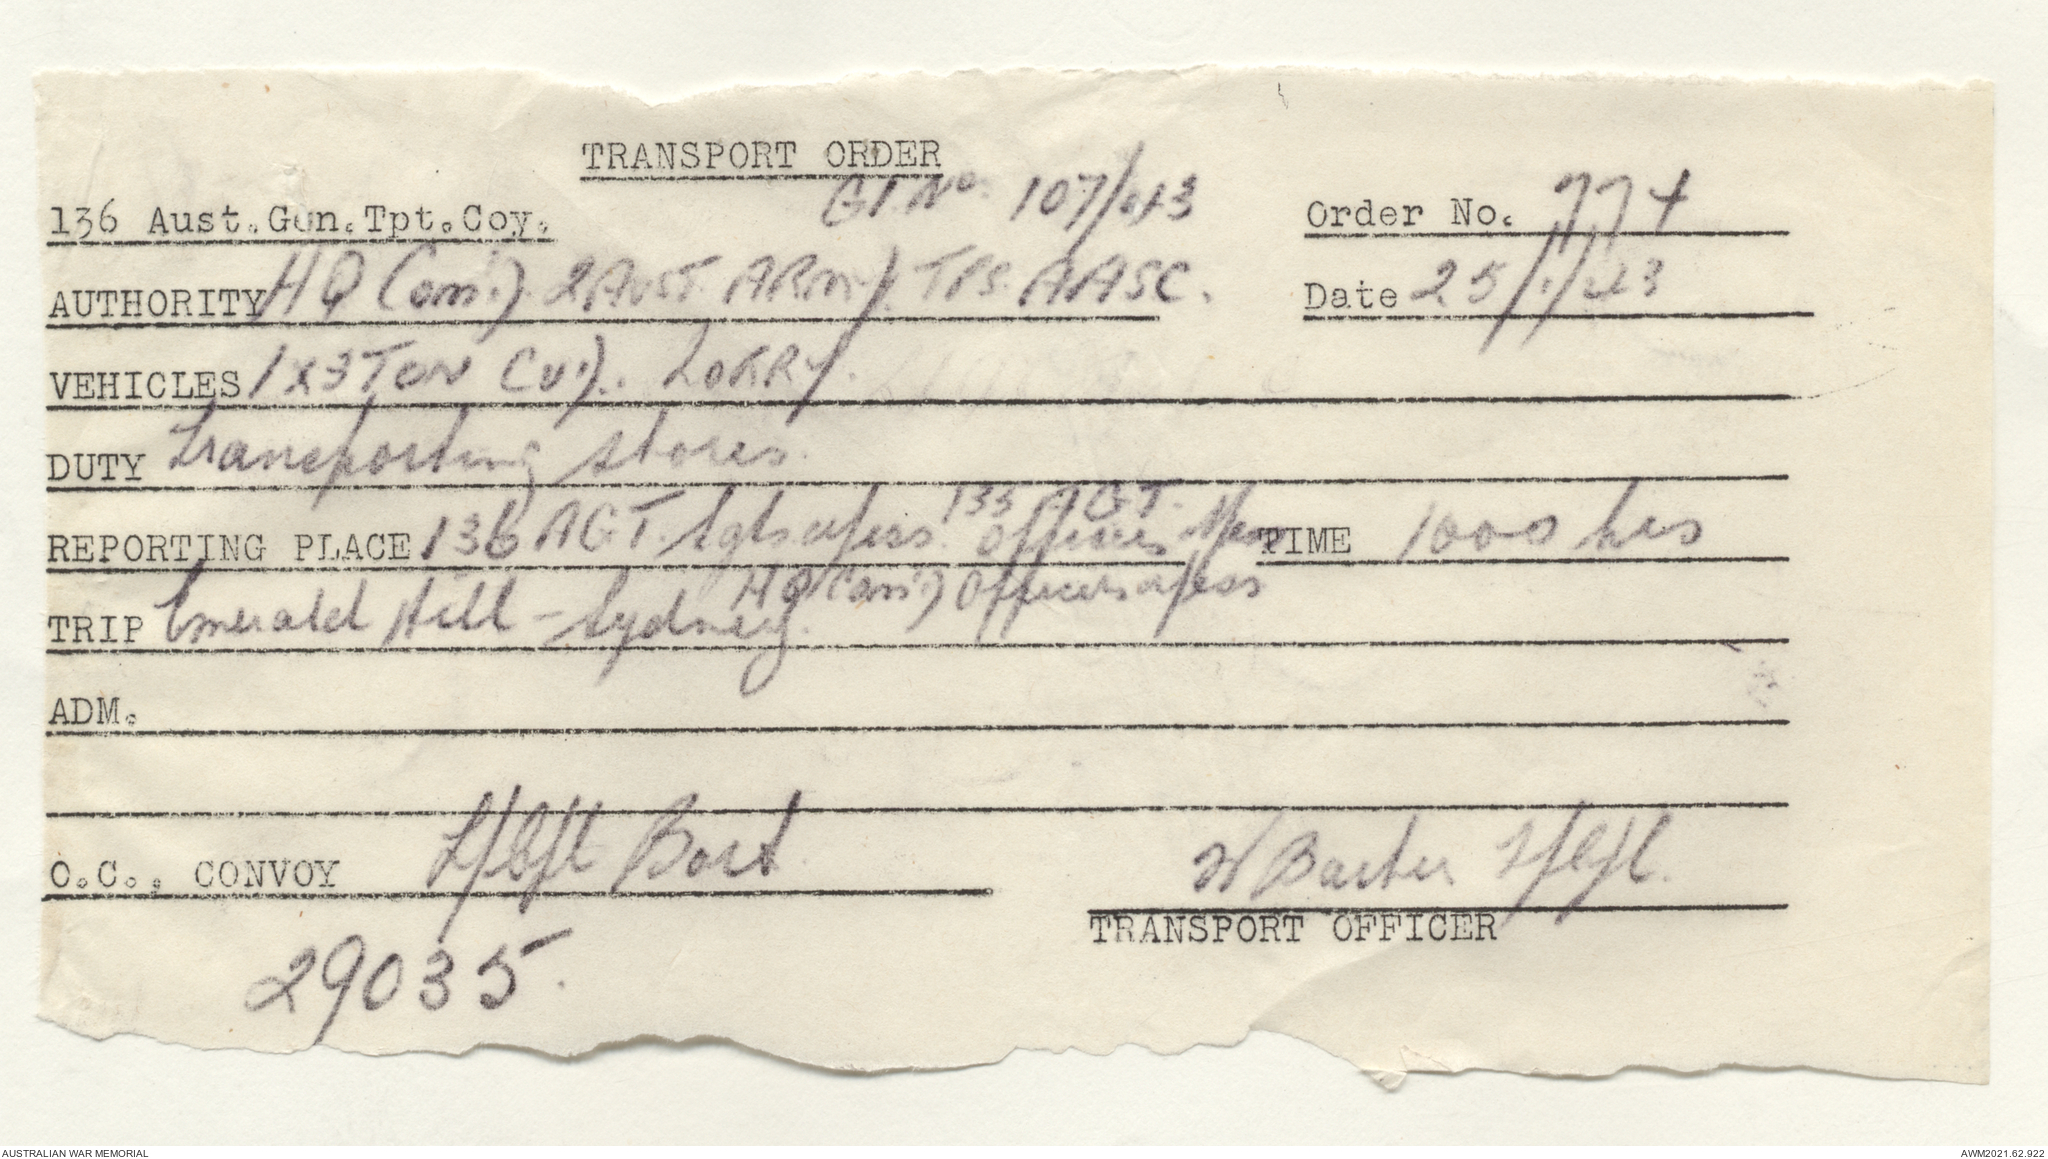 TRANSPORT ORDER
G.I. No. 107/43
136 Aust.Gen.Tpt.Coy.
Order No. 774
AUTHORITY HQ (Com'd). 2 Aust. ARMY. TPS. AASC.
Date 25/1/43
VEHICLES 1 x 3 Ton Cov'd. LORRY.
DUTY Transporting stores.
135 AGT.
REPORTING PLACE 136 AGT. Sgts Mess. Officers Mess TIME 1000 hrs
HQ (Com'd) Officers Mess
TRIP Emerald Hill – Sydney.
ADM.
O.C., CONVOY L/Cpl
W Barber L/Cpl.
TRANSPORT OFFICER
29035.
AUSTRALIAN WAR MEMORIAL
AWM2021.62.922